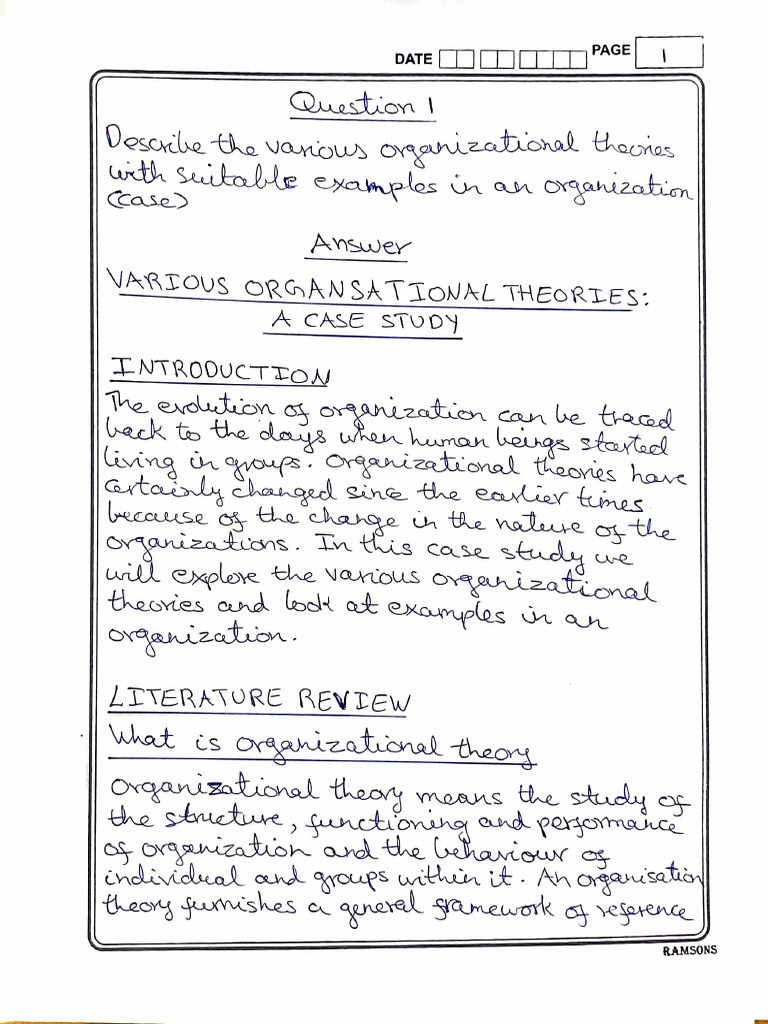 DATE PAGE 1
Question 1
Describe the various organizational theories
with suitable examples in an organization
(case)
Answer
VARIOUS ORGANSATIONAL THEORIES:
A CASE STUDY
INTRODUCTION
The evolution of organization can be traced
back to the days when human beings started
living in groups. Organizational theories have
certainly changed since the earlier times
because of the change in the nature of the
organizations. In this case study we
will explore the various organizational
theories and look at examples in an
organization.
LITERATURE REVIEW
What is organizational theory
Organizational theory means the study of
the structure, functioning and performance
of organization and the behaviour of
individual and groups within it. An organisation
theory furnishes a general framework of reference
RAMSONS